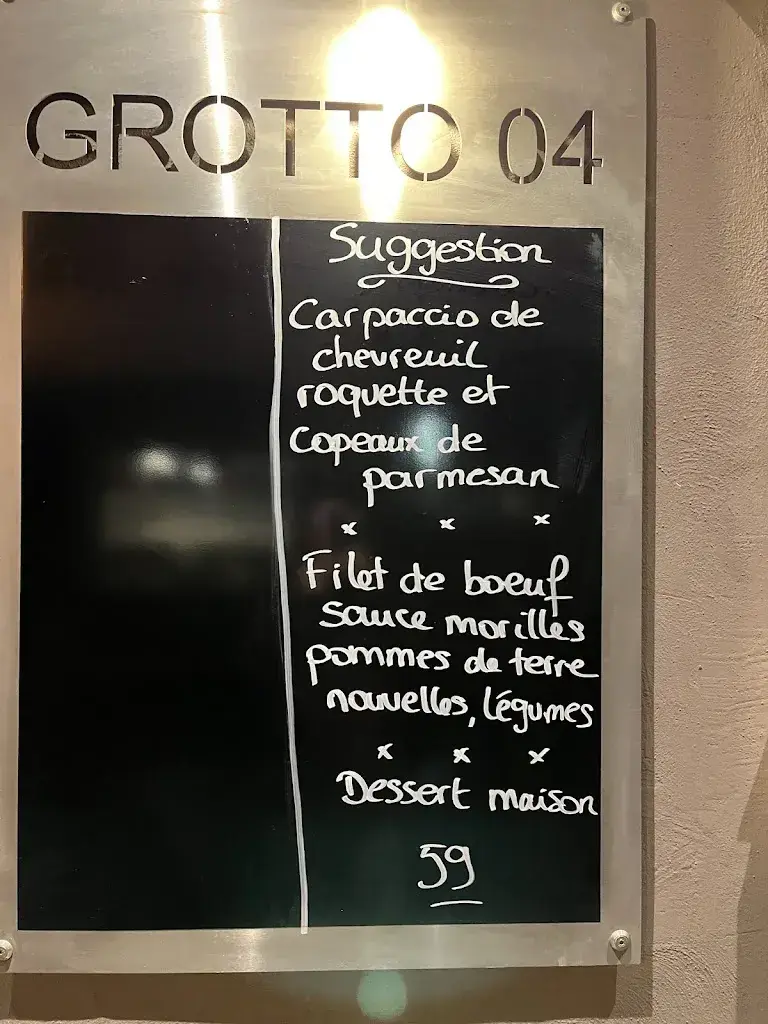 GROTTO 04
Suggestion
Carpaccio de
chevreuil
roquette et
copeaux de
parmesan
x x x
Filet de boeuf
sauce morilles
pommes de terre
nouvelles, légumes
x x x
Dessert maison
59